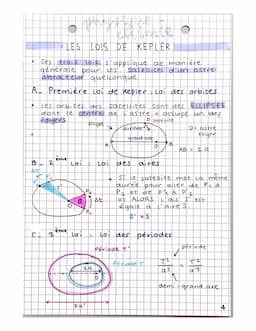 physique
chimie
LES LOIS DE KEPLER
• Ces trois lois s'applique de manière
générale pour les satellites d'un astre
attracteur quelconque
A. Première loi de Kepler : Loi des orbites
• Les orbites des satellites sont des ELLIPSES
dont le centre de l'astre occupe un des
foyers
ellipse
planète
O = astre
foyer
grand axe
AB = 2a
B. 2ème Loi : Loi des aires
• Si le satellite met la même
durée pour aller de P1 à
P2 et de P'1 à P'2
ALORS l'air S' est
égale à l'aire S.
S' = S
C. 3ème Loi : Loi des périodes
Période T'
Période T
période
T²
a³
=
T'²
a'³
demi-grand axe
2a
2a'
4